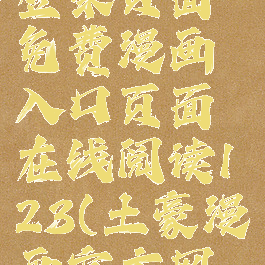 登录页面
免费漫画
入口页面
在线阅读1
23(土豪漫